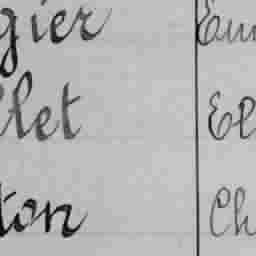 gier Em
llet El
ton Ch